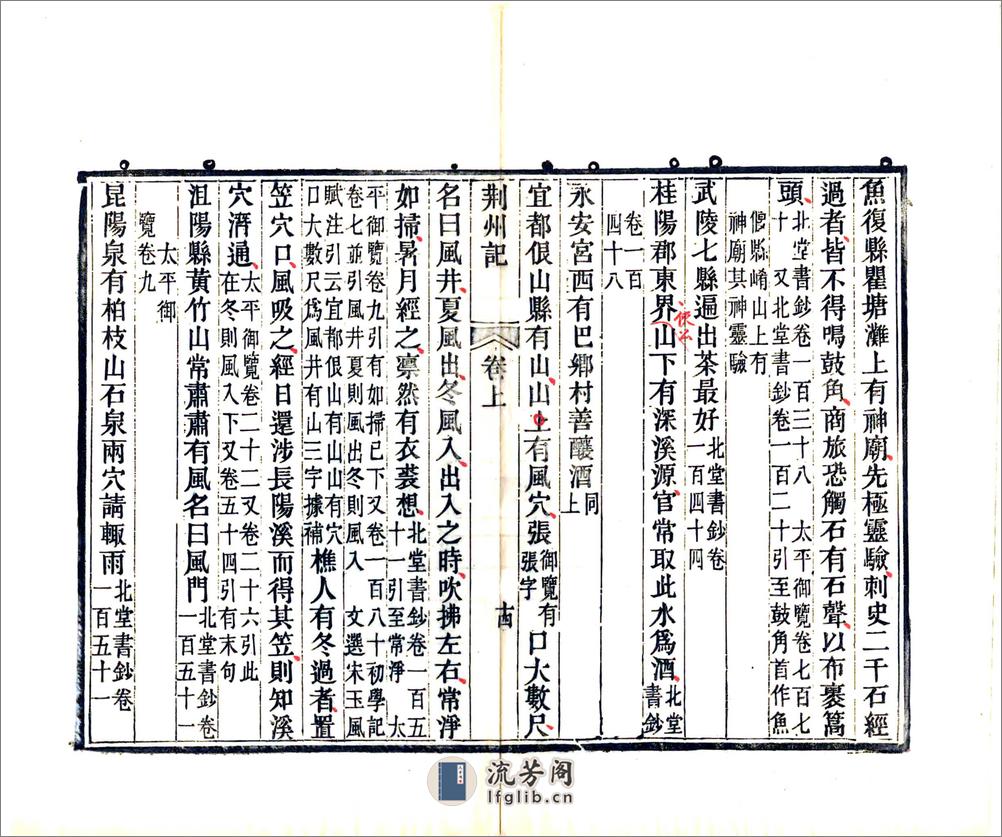 魚復縣瞿塘灘上有神廟先極靈驗刺史二千石經
過者皆不得鳴鼓角商旅恐觸石有石聲以布裹篙
頭北堂書鈔卷一百三十八 太平御覽卷七百七
十 又北堂書鈔卷一百二十引至鼓角首作魚
復縣崤山上有
神廟其神靈驗
武陵七縣遍出茶最好北堂書鈔卷
一百四十四
桂陽郡東界山下有深溪源官常取此水爲酒北堂
書鈔
卷一百
四十八
永安宮西有巴鄉村善釀酒同
上
宜都佷山縣有山山上有風穴張御覽有
張字口大數尺
荆州記
卷上
古
名曰風井夏風出冬風入出入之時吹拂左右常淨
如掃暑月經之凛然有衣裘想北堂書鈔卷一百五
十一引至常淨 太
平御覽卷九引有如掃已下又卷一百八十初學記
卷七並引風井夏則風出冬則風入 文選宋玉風
賦注引云宜都佷山有山山有穴
口大數尺爲風井有山三字據補樵人有冬過者置
笠穴口風吸之經日還涉長陽溪而得其笠則知溪
穴濳通太平御覽卷二十二又卷二十六引此
在冬則風入下又卷五十四引有末句
沮陽縣黃竹山常肅肅有風名曰風門北堂書鈔卷
一百五十一
太平御
覽卷九
昆陽泉有柏枝山石泉兩穴請輒雨北堂書鈔卷
一百五十一
流芳阁
lfglib.cn